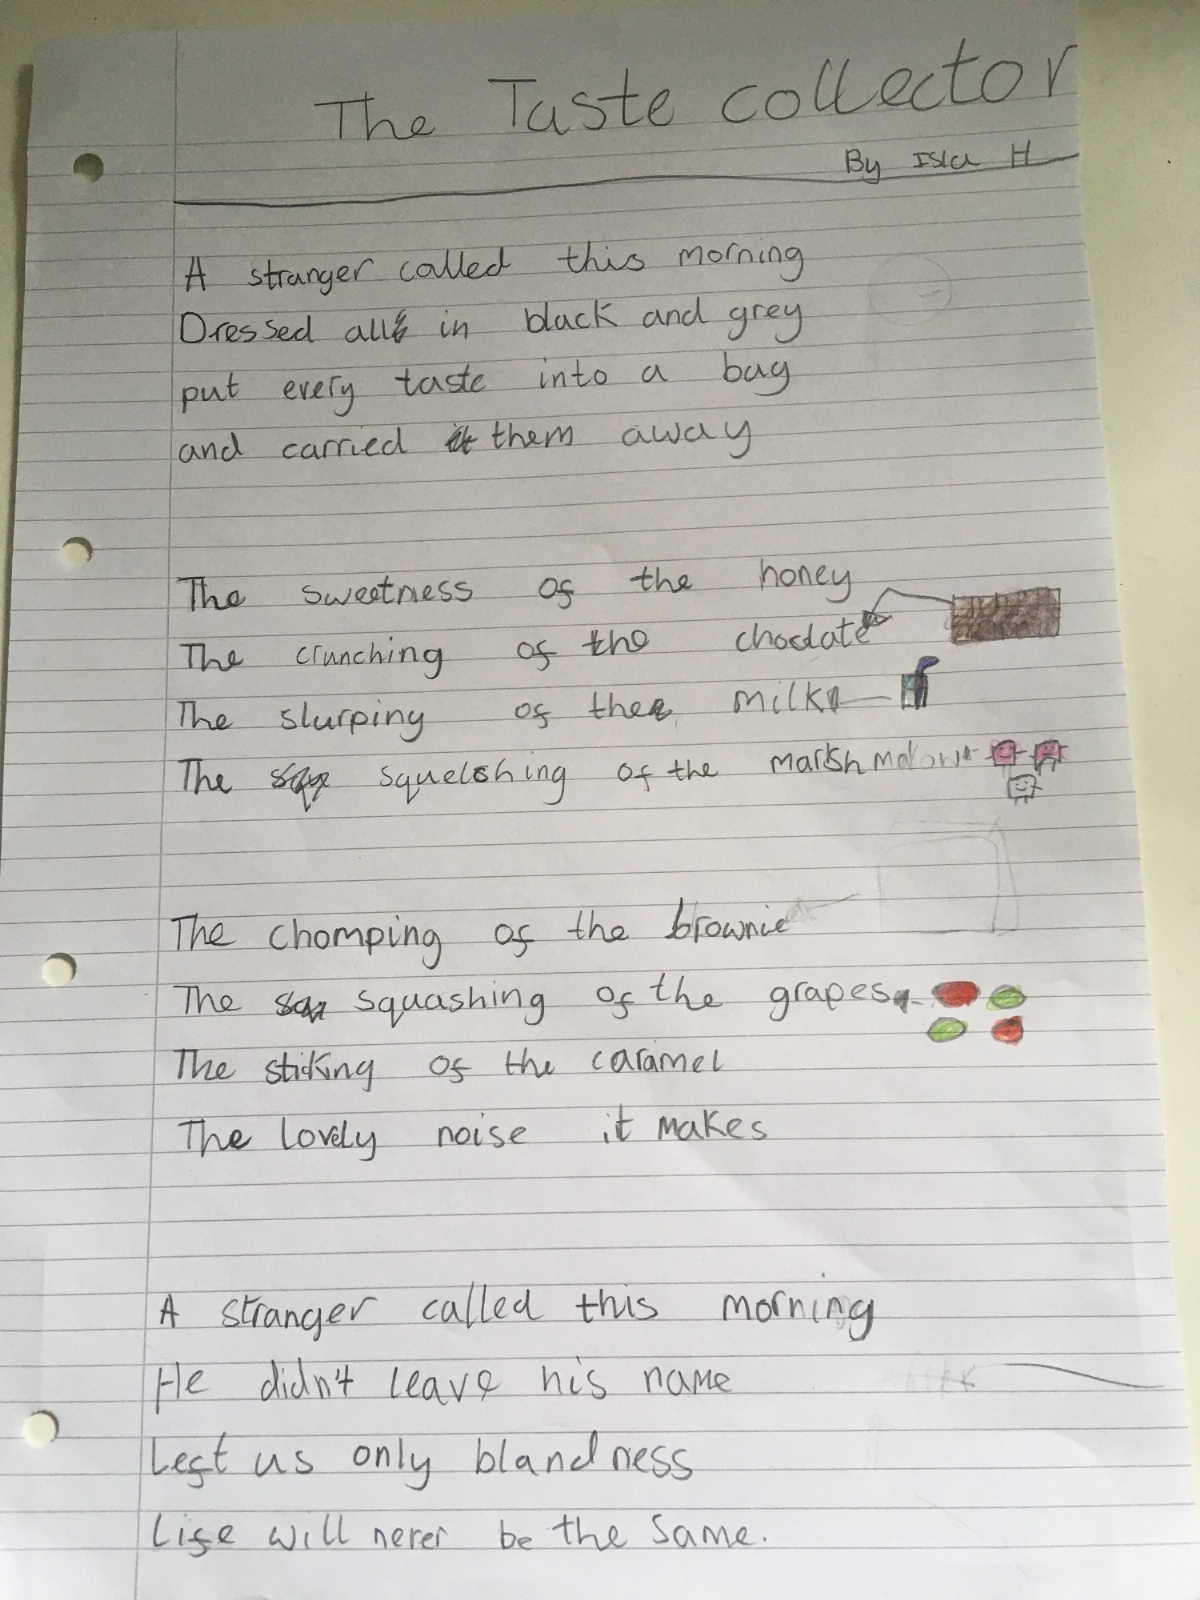 The Taste collector
By Isla H
A stranger called this morning
Dressed all in black and grey
put every taste into a bag
and carried them away
The sweetness of the honey
The crunching of the choclate
The slurping of the milk
The squelching of the marshmalow
The chomping of the brownie
The squashing of the grapes
The sticking of the caramel
The lovely noise it makes
A stranger called this morning
He didn't leave his name
Left us only blandness
Life will never be the same.